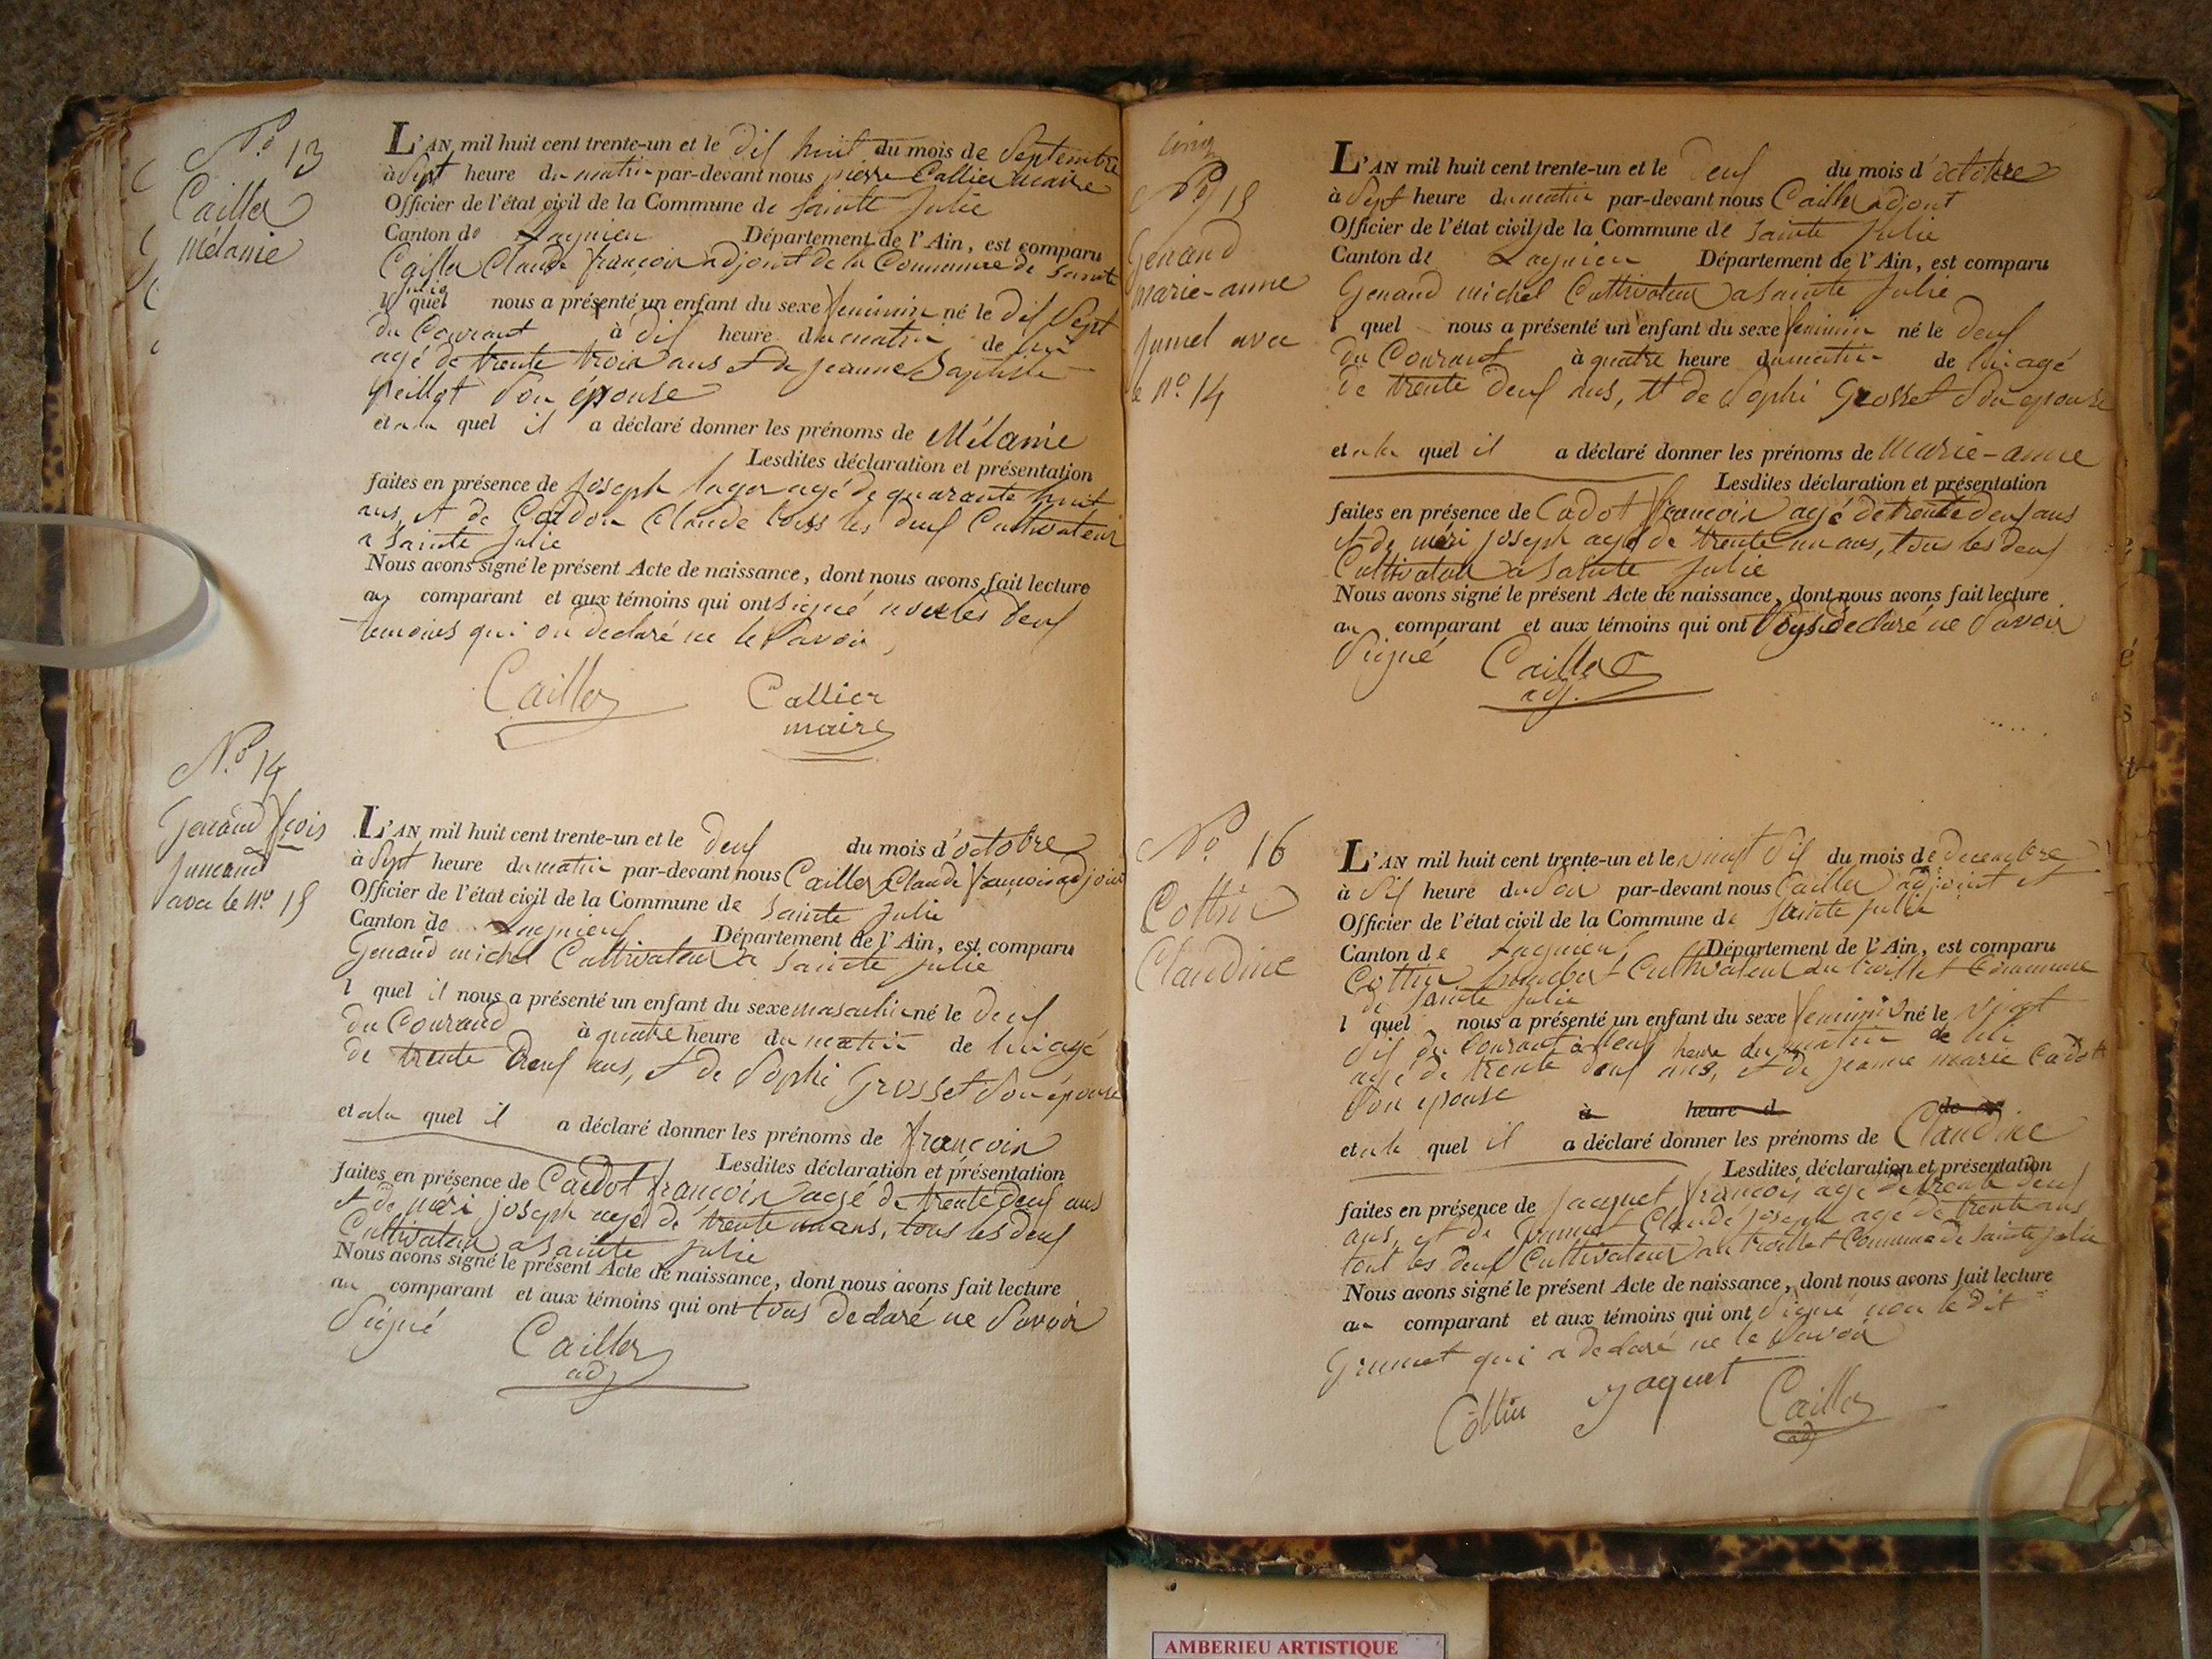 N.o 13
Cailler
Mélanie
L'AN mil huit cent trente-un et le dix huit du mois de Septembre
à Sept heure du matin par-devant nous pierre Callier maire
Officier de l'état civil de la Commune de Sainte Julie
Canton de Lagnieu Département de l'Ain, est comparu
Cailler Claude françois adjoint de la Commune de Sainte
Julie
l quel nous a présenté un enfant du sexe feminin né le dix Sept
du Courant à dix heure du matin de lui
agé de trente trois ans et de jeanne Baptiste
peillot Son épouse
et a la quel il a déclaré donner les prénoms de Mélanie
Lesdites déclaration et présentation
faites en présence de joseph agé de quarante huit
ans, et de Claude tous les deux Cultivateur
a Sainte Julie
Nous avons signé le présent Acte de naissance, dont nous avons fait lecture
au comparant et aux témoins qui ont signé non les deux
temoins qui on declaré ne le Savoir,
Cailler Callier
maire
N.o 14
Genand fçois
Jumeand
avec le No 15
L'AN mil huit cent trente-un et le deux du mois d'octobre
à Sept heure du matin par-devant nous Cailler Claude francois adjoint
Officier de l'état civil de la Commune de Sainte Julie
Canton de Lagnieu Département de l'Ain, est comparu
Genand michel Cultivateur a Sainte Julie
l quel il nous a présenté un enfant du sexe masculin né le deux
du Courand à quatre heure du matin de lui agé
de trente deux ans, et de Sophi Grosset Son épouse
et a la quel il a déclaré donner les prénoms de françois
Lesdites déclaration et présentation
faites en présence de Cadot françois agé de trente deux ans
et de méri joseph agé de trente un ans, tous les deux
Cultivateur a Sainte Julie
Nous avons signé le présent Acte de naissance, dont nous avons fait lecture
au comparant et aux témoins qui ont tous declaré ne Savoir
Signé
Cailler
adj
cinq
No 15
Genand
marie-anne
Jumel avec
le No. 14
L'AN mil huit cent trente-un et le deux du mois d'octobre
à Sept heure du matin par-devant nous Cailler adjont
Officier de l'état civil de la Commune de Sainte Julie
Canton de Lagnieu Département de l'Ain, est comparu
Genand michel Cultivateur a Sainte Julie
l quel nous a présenté un enfant du sexe feminin né le deux
du Courant à quatre heure du matin de lui agé
de trente deux ans, et de Sophi Grosset Son epouse
et a la quel il a déclaré donner les prénoms de marie-anne
Lesdites déclaration et présentation
faites en présence de Cadot françois agé de trente deux ans
et de méri joseph agé de trente un ans, tous les deux
Cultivateur a Sainte Julie
Nous avons signé le présent Acte de naissance, dont nous avons fait lecture
au comparant et aux témoins qui ont declaré ne Savoir
Signé Cailler
adj.
No. 16
Cottin
Claudine
L'AN mil huit cent trente-un et le vingt Six du mois de decembre
à Six heure du Soir par-devant nous Cailler adjoint et
Officier de l'état civil de la Commune de Sainte Julie
Canton de Lagnieu Département de l'Ain, est comparu
Cottin Cultivateur au trollet Commune
de Sainte Julie
l quel nous a présenté un enfant du sexe feminin né le vingt
Six du Courant à heure du matin de lui
agé de trente deux ans, et de jeanne marie Cadot
Son epouse à heure d de
et a la quel il a déclaré donner les prénoms de Claudine
Lesdites déclaration et présentation
faites en présence de Jacquet françois agé de trente deux
ans, et de Grumet Claude joseph agé de trente ans
tout les deux Cultivateur au trollet Commune de Sainte Julie
Nous avons signé le présent Acte de naissance, dont nous avons fait lecture
au comparant et aux témoins qui ont Signé non le dit
Grumet qui a declaré ne le Savoir
Cottin Jaquet Cailler
adj
AMBERIEU ARTISTIQUE